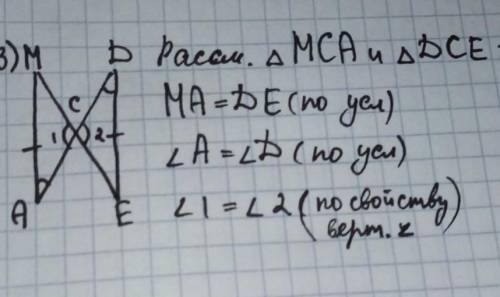 3) M D Рассм. △MCA и △DCE
C MA = DE (по усл)
1 2 ∠A = ∠D (по усл)
A E ∠1 = ∠2 (по свойству
верт. ∠)